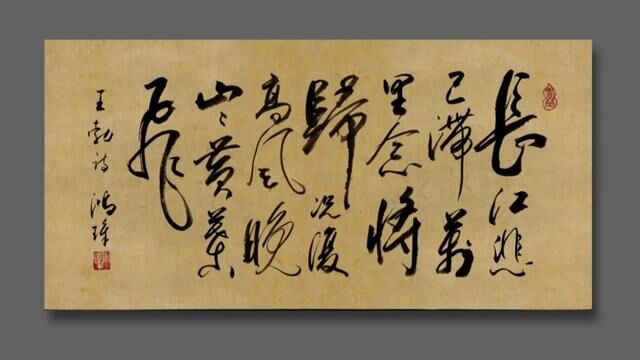 長江悲
已滯萬
里念將
歸況復
高風晚
山々黃葉
飛
王勃詩 鴻